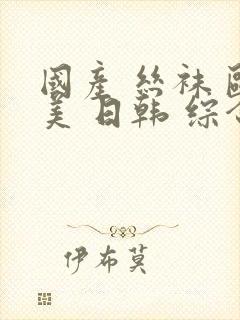 國產 丝袜 歐
美 日韩 综合
伊布莫